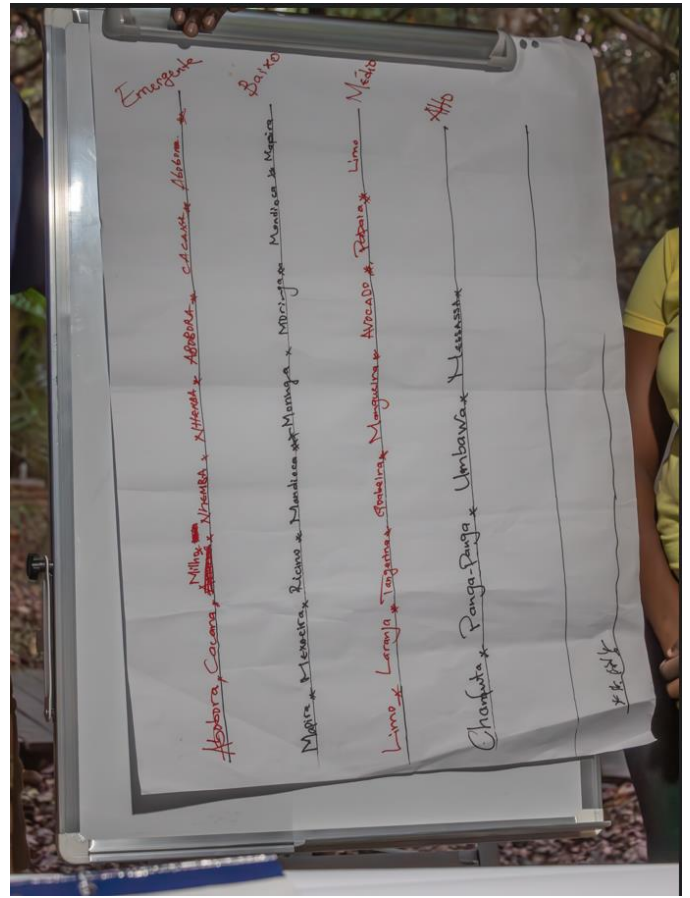 Abobora x Cacana x Milho x NHEMBA x NHEMBA x ABOBORA x CACANA x Abobora x Emergente
Mapira x Mexoeira x Ricino x Mandioca x Moringa x Moringa x Mandioca x Mapira Baixo
Limo x Laranja x Tangerina x Goabeira x Mangueira x AVOCADO x Papaia x Limo Médio
Chanfuta x Panga-Panga x Umbawa x Messassa Alto